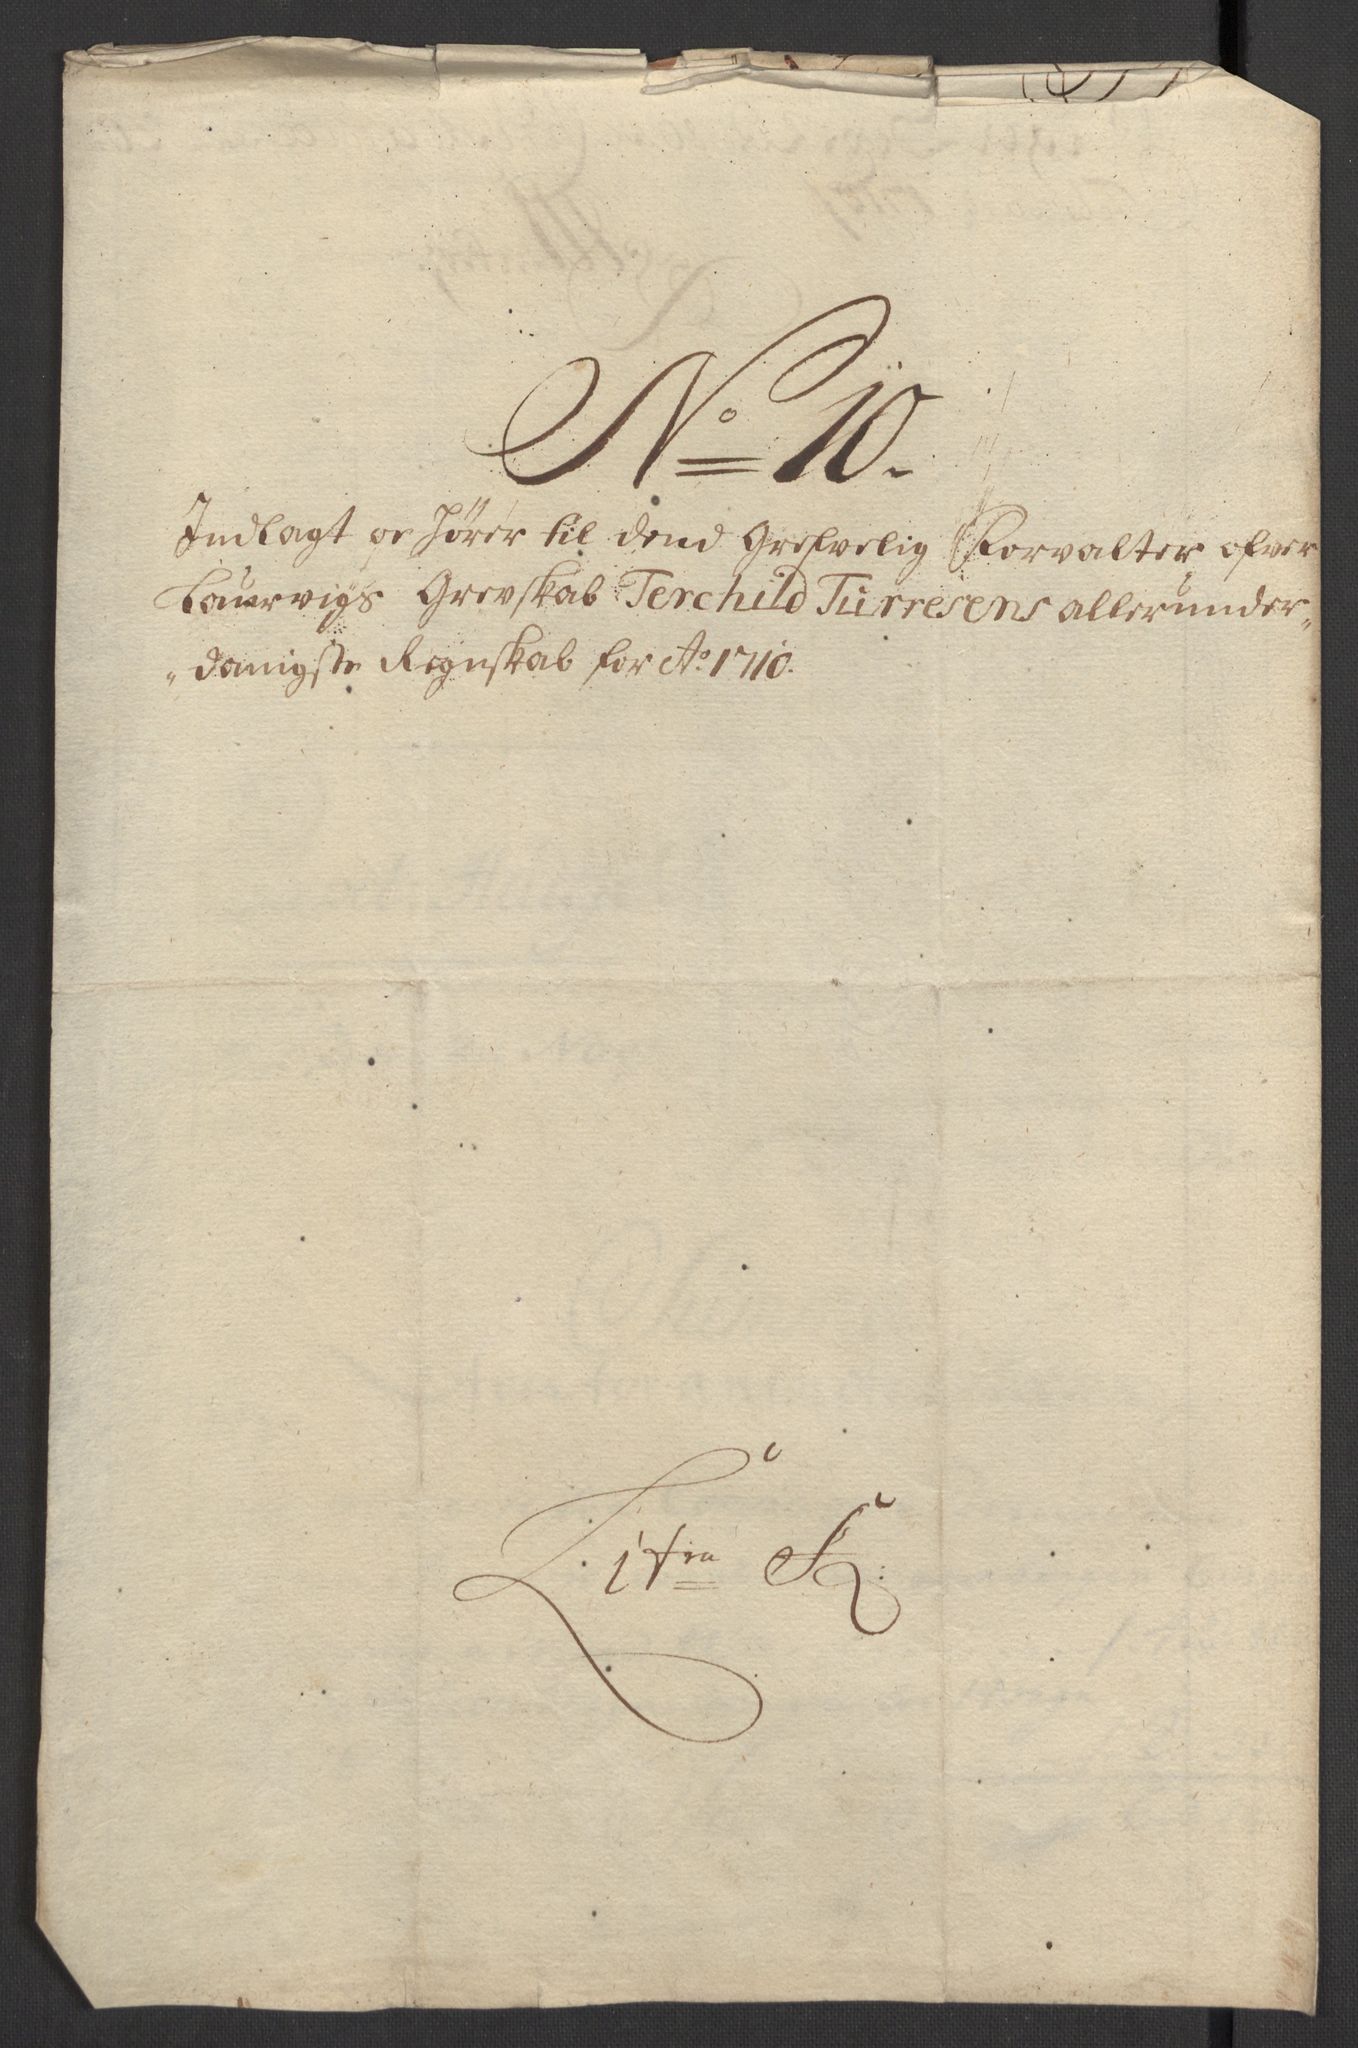 No 10.
Indlagt og hører til dend Grefvelig Forvalter ofver
Laurvigs Grevskab Terchild Turresens allerunder„
„danigste Regnskab for Ao 1710.
Litra K: